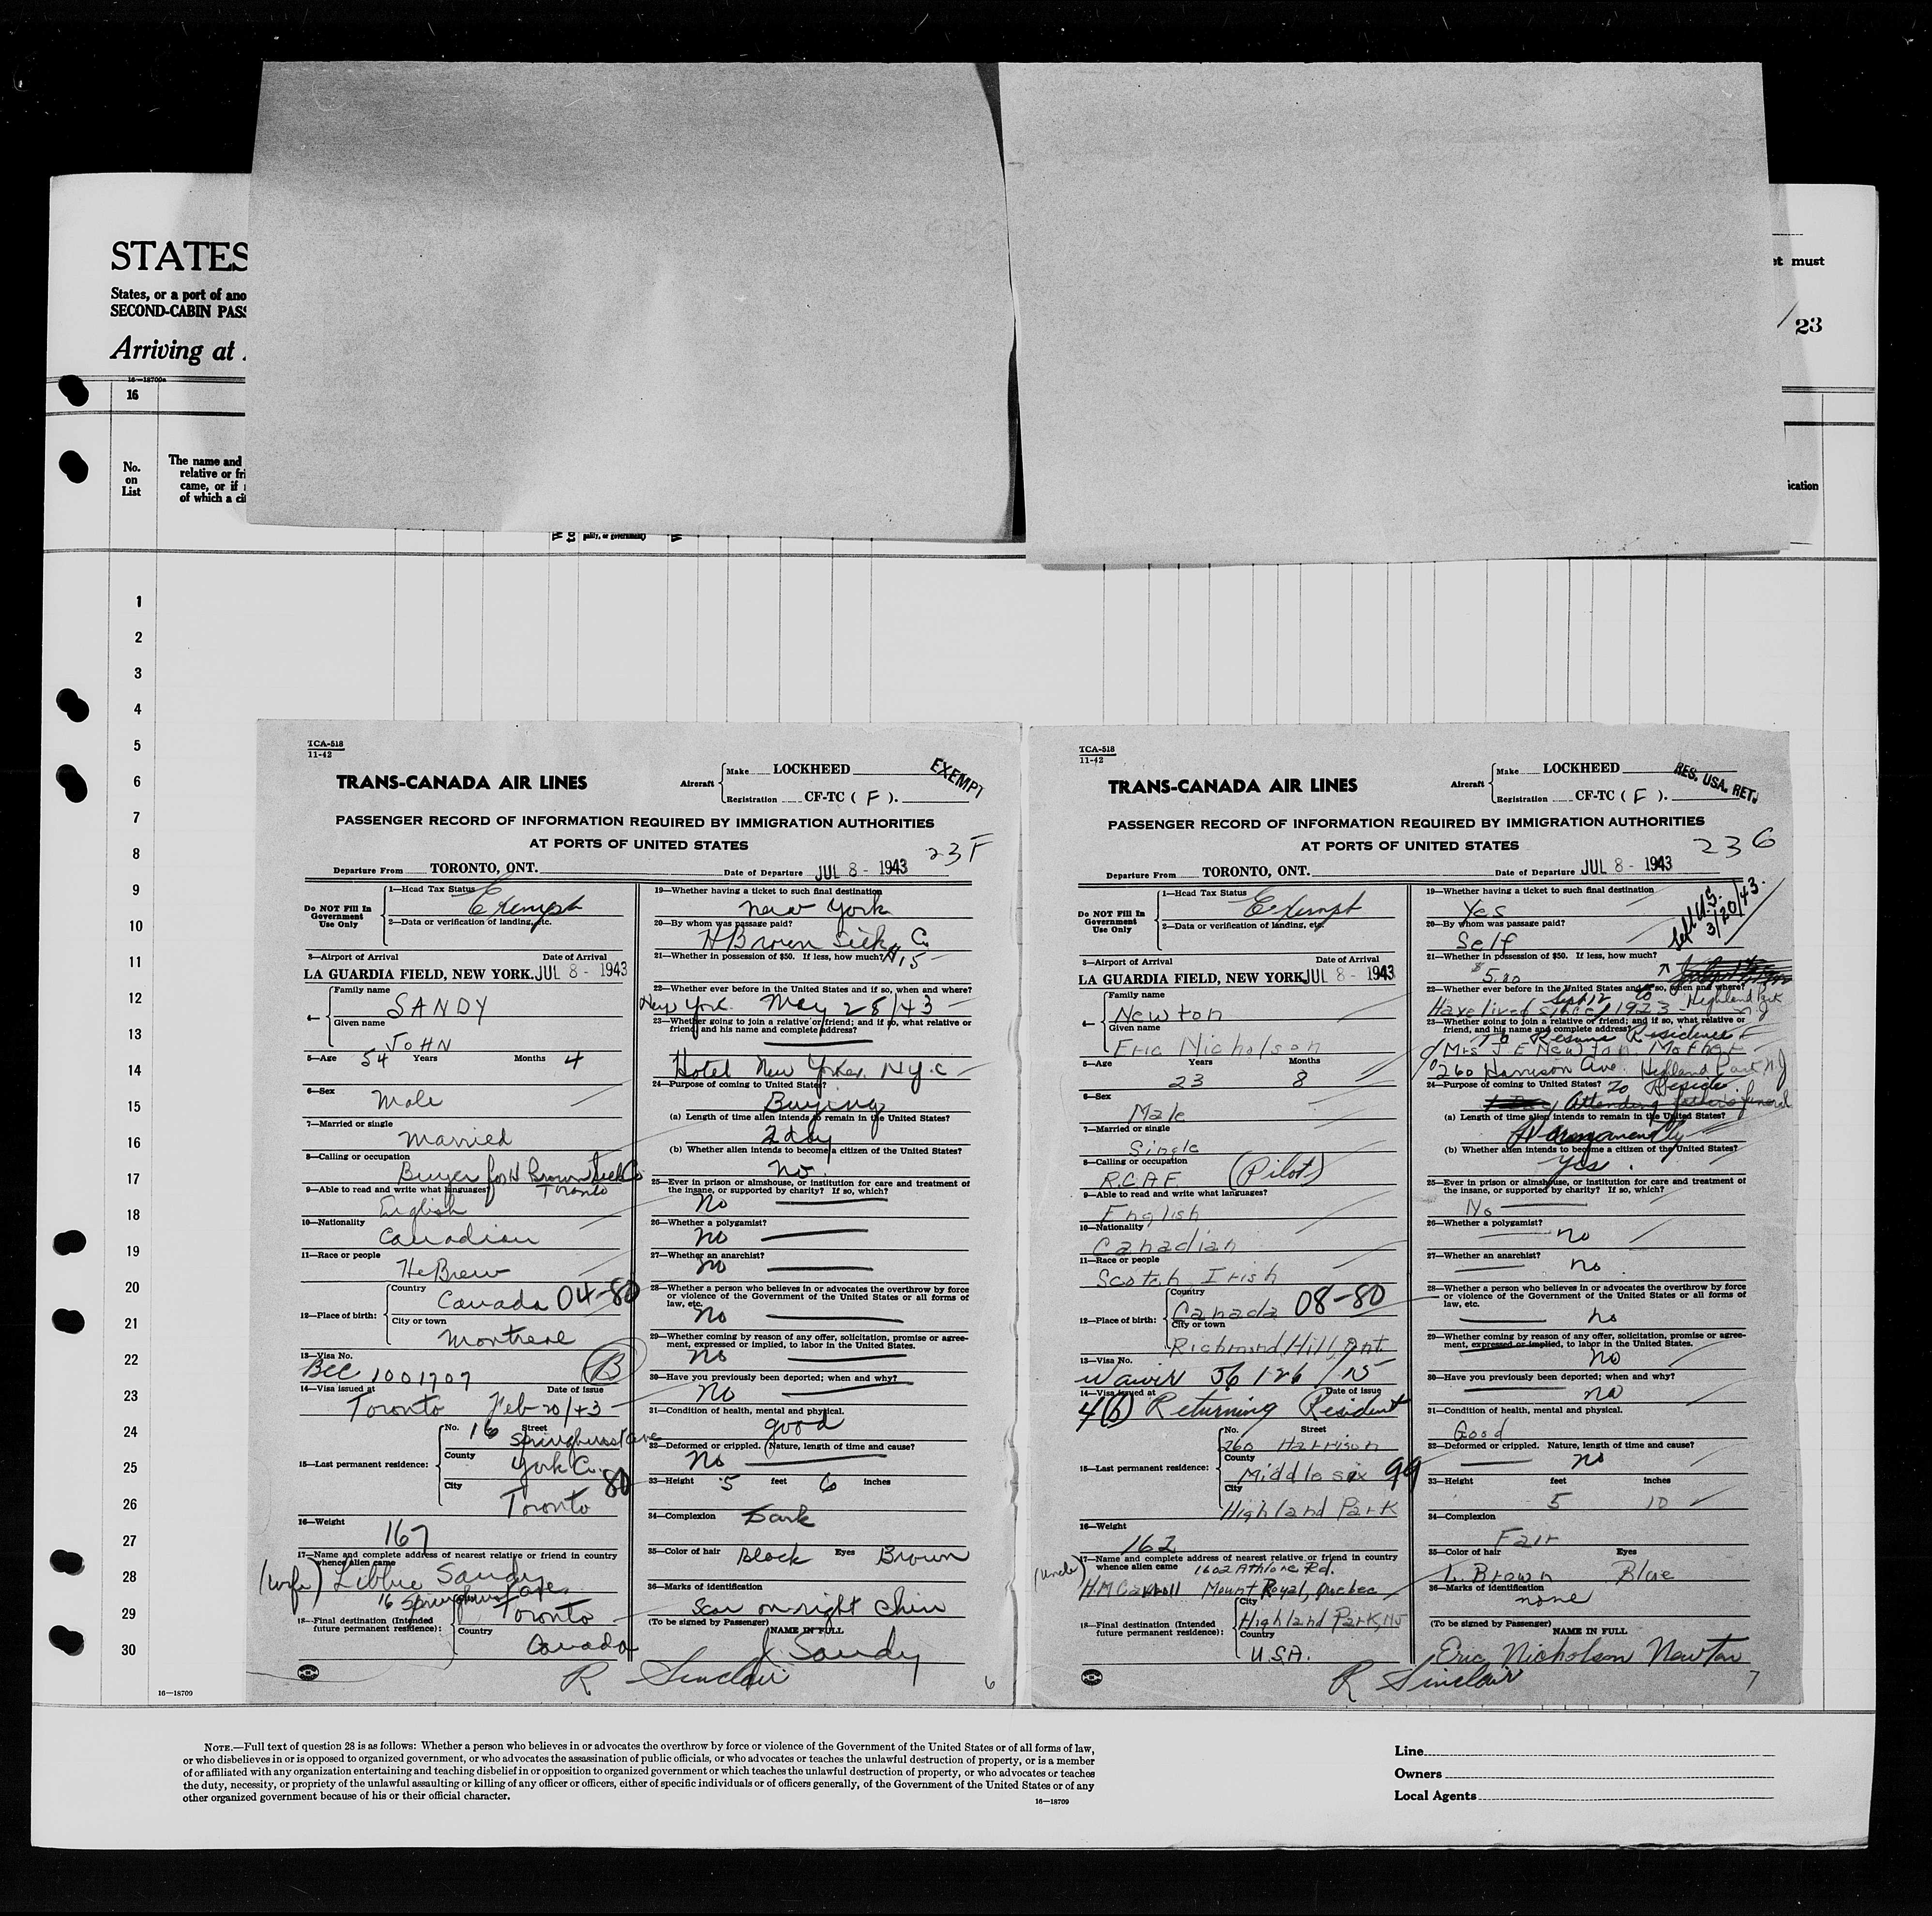 STATES
States, or a port of ano
SECOND-CABIN PASS
Arriving at
16—18700a
16
No.
on
List
The name and
relative or fri
came, or if
of which a cit
pality, or government)
et must
23
ication
1
2
3
4
5
6
7
8
9
10
11
12
13
14
15
16
17
18
19
20
21
22
23
24
25
26
27
28
29
30
16—18709
TCA-518
11-42
TRANS-CANADA AIR LINES
Aircraft
Make LOCKHEED
Registration CF-TC ( F ).
EXEMPT
PASSENGER RECORD OF INFORMATION REQUIRED BY IMMIGRATION AUTHORITIES
AT PORTS OF UNITED STATES
23F
Departure From TORONTO, ONT. Date of Departure JUL 8 - 1943
Do NOT Fill In
Government
Use Only
1—Head Tax Status
Exempt
2—Data or verification of landing, etc.
3—Airport of Arrival Date of Arrival
LA GUARDIA FIELD, NEW YORK. JUL 8 - 1943
4—
Family name
SANDY
Given name
JOHN
5—Age 54 Years Months 4
6—Sex
Male
7—Married or single
Married
8—Calling or occupation
Buyer for H Brown Silk Co
Toronto
9—Able to read and write what languages?
English
10—Nationality
Canadian
11—Race or people
HeBrew
12—Place of birth:
Country
Canada 04-80
City or town
Montreal
13—Visa No.
BCC 1001707 (B)
14—Visa issued at Date of issue
Toronto Feb 20/43
15—Last permanent residence:
No. 16 Street
Springhurst ave
County
York Co.
City 80
Toronto
16—Weight
167
17—Name and complete address of nearest relative or friend in country
whence alien came
(wife) Libbie Sandy
16 Springhurst ave
18—Final destination (Intended
future permanent residence):
Toronto
Country
Canada
19—Whether having a ticket to such final destination
New York
20—By whom was passage paid?
H Brown Silk Co
21—Whether in possession of $50. If less, how much? $15
22—Whether ever before in the United States and if so, when and where?
New York. May 28/43
23—Whether going to join a relative or friend; and if so, what relative or
friend, and his name and complete address?
Hotel New Yorker N.Y.C
24—Purpose of coming to United States?
Buying
(a) Length of time alien intends to remain in the United States?
2 day
(b) Whether alien intends to become a citizen of the United States?
no
25—Ever in prison or almshouse, or institution for care and treatment of
the insane, or supported by charity? If so, which?
No
26—Whether a polygamist?
No
27—Whether an anarchist?
no
28—Whether a person who believes in or advocates the overthrow by force
or violence of the Government of the United States or all forms of
law, etc.
No
29—Whether coming by reason of any offer, solicitation, promise or agree-
ment, expressed or implied, to labor in the United States.
no
30—Have you previously been deported; when and why?
No
31—Condition of health, mental and physical.
good
32—Deformed or crippled. (Nature, length of time and cause?
No
33—Height 5 feet 6 inches
34—Complexion Dark
35—Color of hair Black Eyes Brown
36—Marks of identification
Scar on right Chin
(To be signed by Passenger)
NAME IN FULL
J. Sandy
R Sinclair
6
TCA-518
11-42
TRANS-CANADA AIR LINES
Aircraft
Make LOCKHEED
Registration CF-TC ( F ).
RES. USA. RET.
PASSENGER RECORD OF INFORMATION REQUIRED BY IMMIGRATION AUTHORITIES
AT PORTS OF UNITED STATES
23G
Departure From TORONTO, ONT. Date of Departure JUL 8 - 1943
Do NOT Fill In
Government
Use Only
1—Head Tax Status
Exempt
2—Data or verification of landing, etc.
3—Airport of Arrival Date of Arrival
LA GUARDIA FIELD, NEW YORK JUL 8 - 1943
4—
Family name
Newton
Given name
Eric Nicholson
5—Age Years Months
23 8
6—Sex
Male
7—Married or single
Single
8—Calling or occupation
R.C.A.F. (Pilot)
9—Able to read and write what languages?
English
10—Nationality
Canadian
11—Race or people
Scotch Irish
12—Place of birth:
Country
Canada 08-80
City or town
Richmond Hill, Ont.
13—Visa No.
Waiver 56126/15
14—Visa issued at Date of issue
4(b) Returning Resident
15—Last permanent residence:
No. Street
260 Harrison
County
Middlesex 99
City
Highland Park
16—Weight
162
17—Name and complete address of nearest relative or friend in country
whence alien came 1602 Athlone Rd.
(Uncle) H.M. Mount Royal, Quebec
18—Final destination (Intended
future permanent residence):
City
Highland Park, NJ
Country
U.S.A.
19—Whether having a ticket to such final destination
Yes
left U.S.
3/20/43.
20—By whom was passage paid?
Self
21—Whether in possession of $50. If less, how much?
$5.00
22—Whether ever before in the United States and if so, when and where?
Sept 12 to Highland Park
Have lived since 1923 N.J
23—Whether going to join a relative or friend; and if so, what relative or
friend, and his name and complete address?
To Resume Residence
c/o Mrs J E Newton Mother
260 Harrison Ave. Highland Park N.J
24—Purpose of coming to United States? To Reside.
Attending father's funeral
(a) Length of time alien intends to remain in the United States?
Permanently
(b) Whether alien intends to become a citizen of the United States?
Yes.
25—Ever in prison or almshouse, or institution for care and treatment of
the insane, or supported by charity? If so, which?
No
26—Whether a polygamist?
no
27—Whether an anarchist?
no.
28—Whether a person who believes in or advocates the overthrow by force
or violence of the Government of the United States or all forms of
law, etc.
no
29—Whether coming by reason of any offer, solicitation, promise or agree-
ment, expressed or implied, to labor in the United States.
no
30—Have you previously been deported; when and why?
no
31—Condition of health, mental and physical.
Good
32—Deformed or crippled. Nature, length of time and cause?
no
33—Height feet inches
5 10
34—Complexion
Fair
35—Color of hair Eyes
L. Brown Blue
36—Marks of identification
none
(To be signed by Passenger)
NAME IN FULL
Eric Nicholson Newton
R Sinclair
7
NOTE.—Full text of question 28 is as follows: Whether a person who believes in or advocates the overthrow by force or violence of the Government of the United States or of all forms of law,
or who disbelieves in or is opposed to organized government, or who advocates the assassination of public officials, or who advocates or teaches the unlawful destruction of property, or is a member
of or affiliated with any organization entertaining and teaching disbelief in or opposition to organized government or which teaches the unlawful destruction of property, or who advocates or teaches
the duty, necessity, or propriety of the unlawful assaulting or killing of any officer or officers, either of specific individuals or of officers generally, of the Government of the United States or of any
other organized government because of his or their official character.
16—18709
Line
Owners
Local Agents